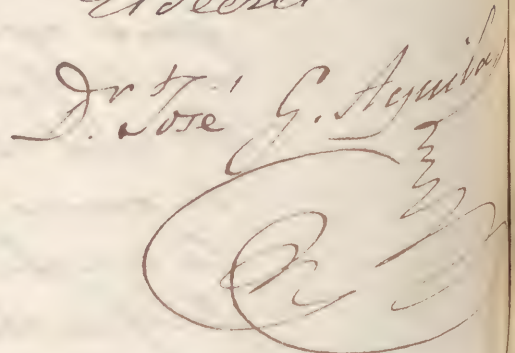 Dr. José G. Aguilar